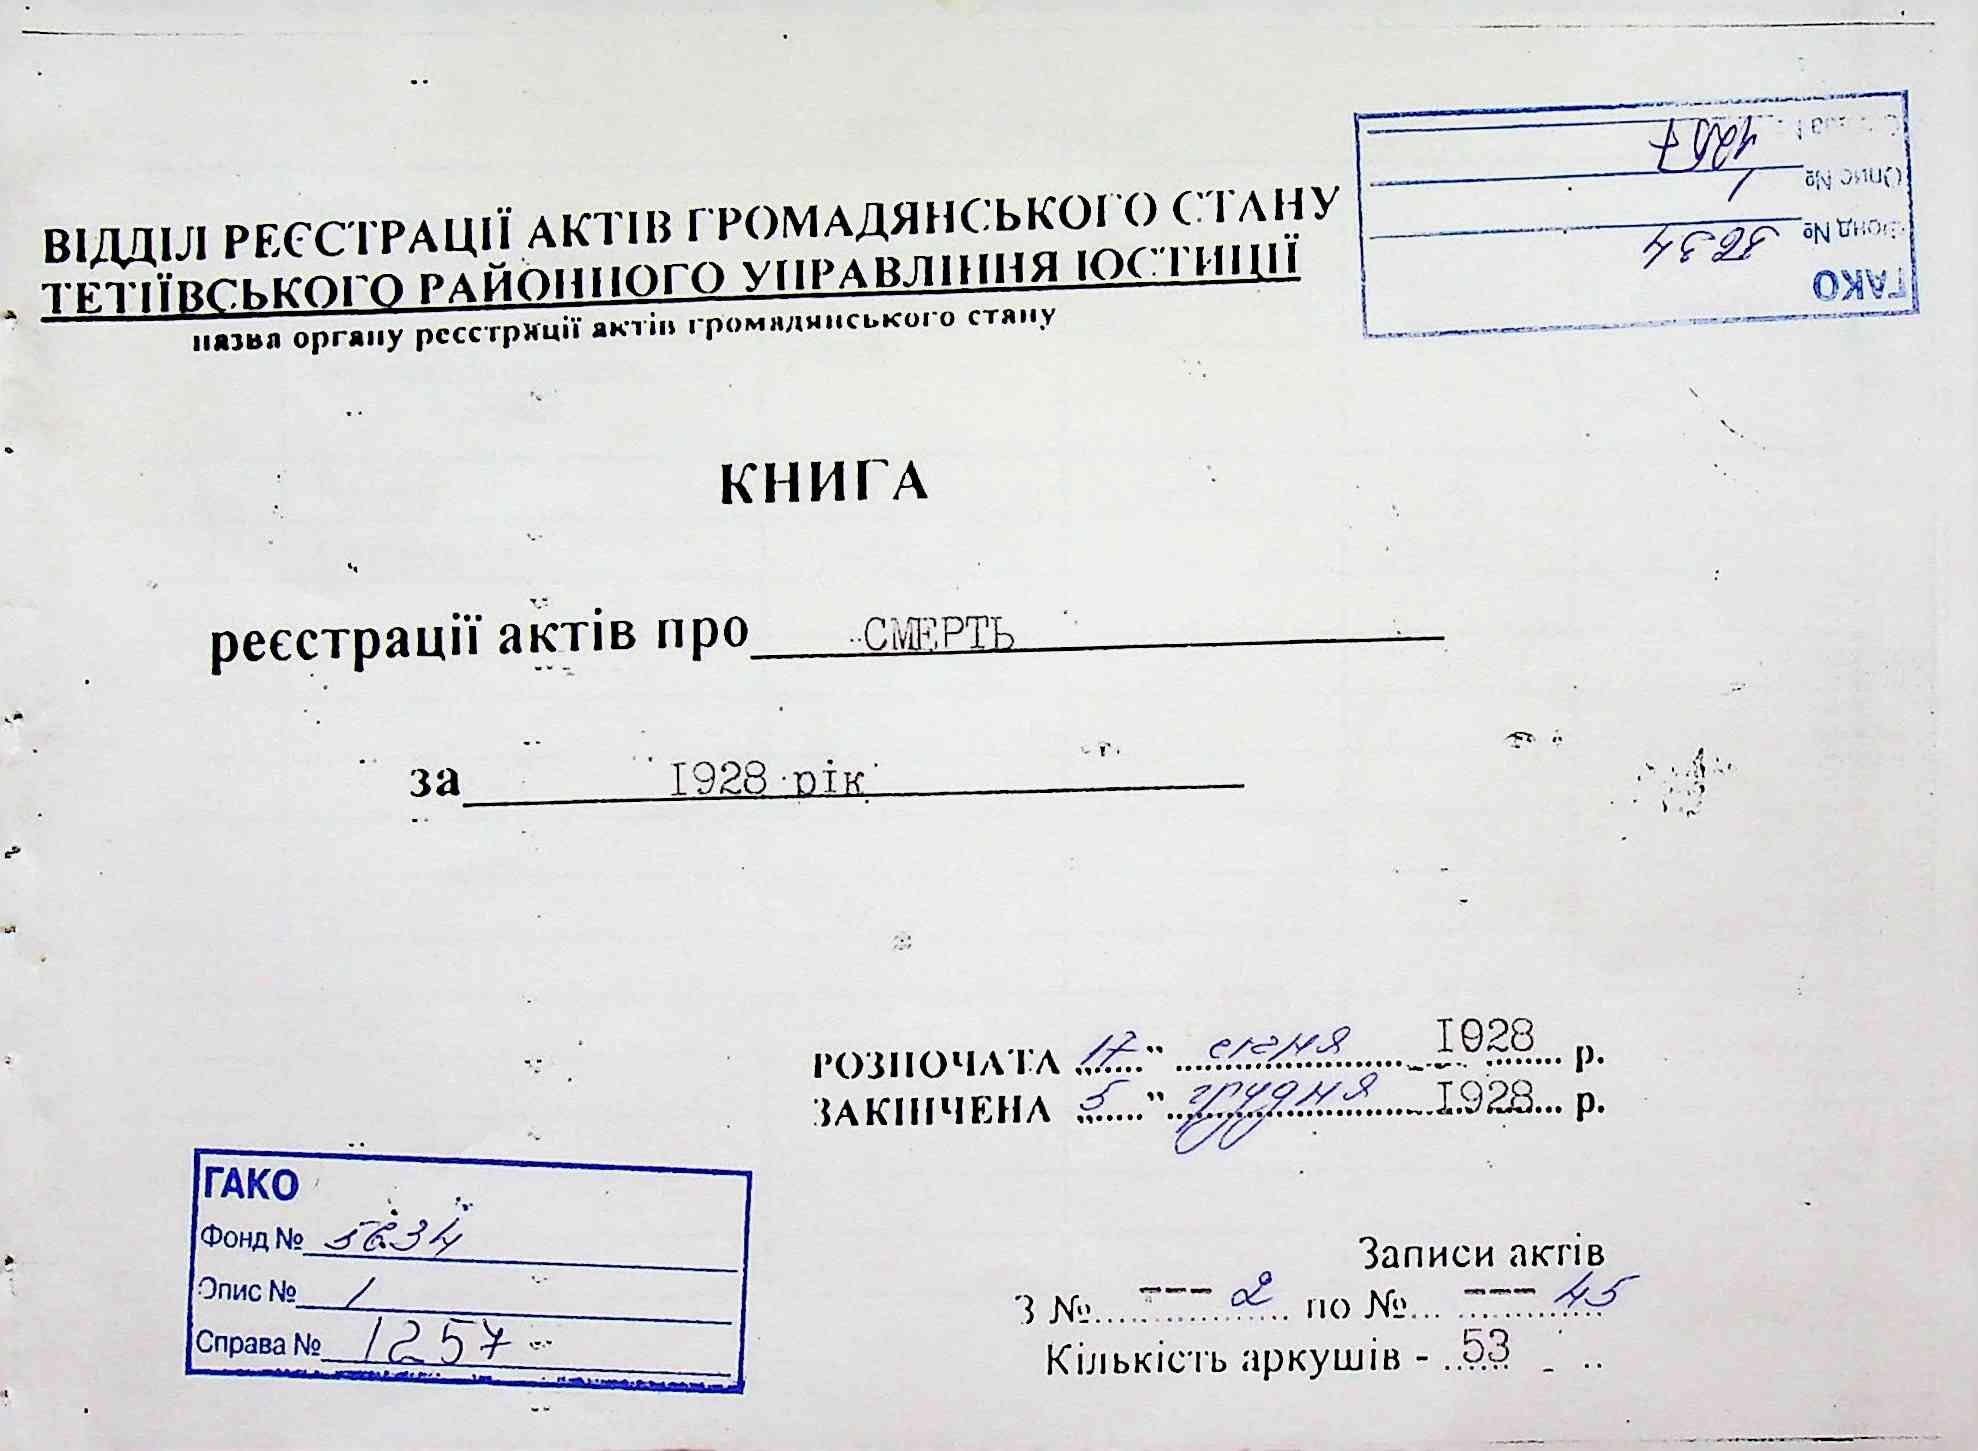 ВІДДІЛ РЕЄСТРАЦІЇ АКТІВ ГРОМАДЯНСЬКОГО СТАНУ
ТЕТІЇВСЬКОГО РАЙОННОГО УПРАВЛІННЯ ЮСТИЦІЇ
назва органу реєстрації актів громадянського стану
ГАКО
Фонд № 5634
Опис № 1
Справа № 1257
КНИГА
реєстрації актів про СМЕРТЬ
за I928 рік
РОЗПОЧАТА 17 " січня I928 р.
ЗАКІНЧЕНА 5 " грудня I928 р.
ГАКО
Фонд № 5634
Опис № 1
Справа № 1257
Записи актів
З № --- 2 по № --- 45
Кількість аркушів - 53